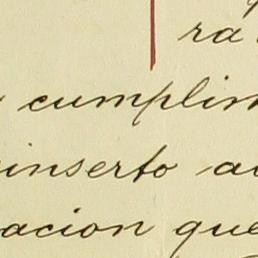 ra
cumplim
inserto a
acion que